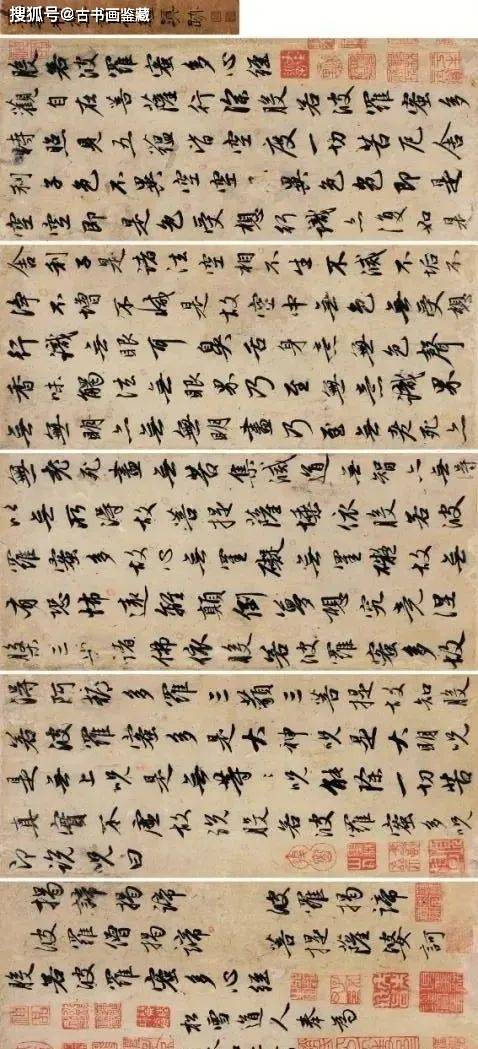 搜狐号@古书画鉴藏
般若波羅蜜多心經
觀自在菩薩行深般若波羅蜜多
時照見五蘊皆空度一切苦厄舍
利子色不異空空異色色即是
空空即是色受想行識亦復如是
舍利子是諸法空相不生不滅不垢不
淨不增不減是故空中無色無受想
行識無眼耳鼻舌身意無色聲
香味觸法無眼界乃至無意識界
無無明亦無無明盡乃至無老死亦
無老死盡無苦集滅道無智亦無得
以無所得故菩提薩埵依般若波
羅蜜多故心無罣礙無罣礙故無
有恐怖遠離顛倒夢想究竟涅
槃三世諸佛依般若波羅蜜多故
得阿耨多羅三藐三菩提故知般
若波羅蜜多是大神呪是大明呪
是無上呪是無等:呪能除一切苦
真實不虛故說般若波羅蜜多呪
即說呪曰
揭諦揭諦 波羅揭諦
波羅僧揭諦 菩提薩婆訶
般若波羅蜜多心經
松雪道人奉為